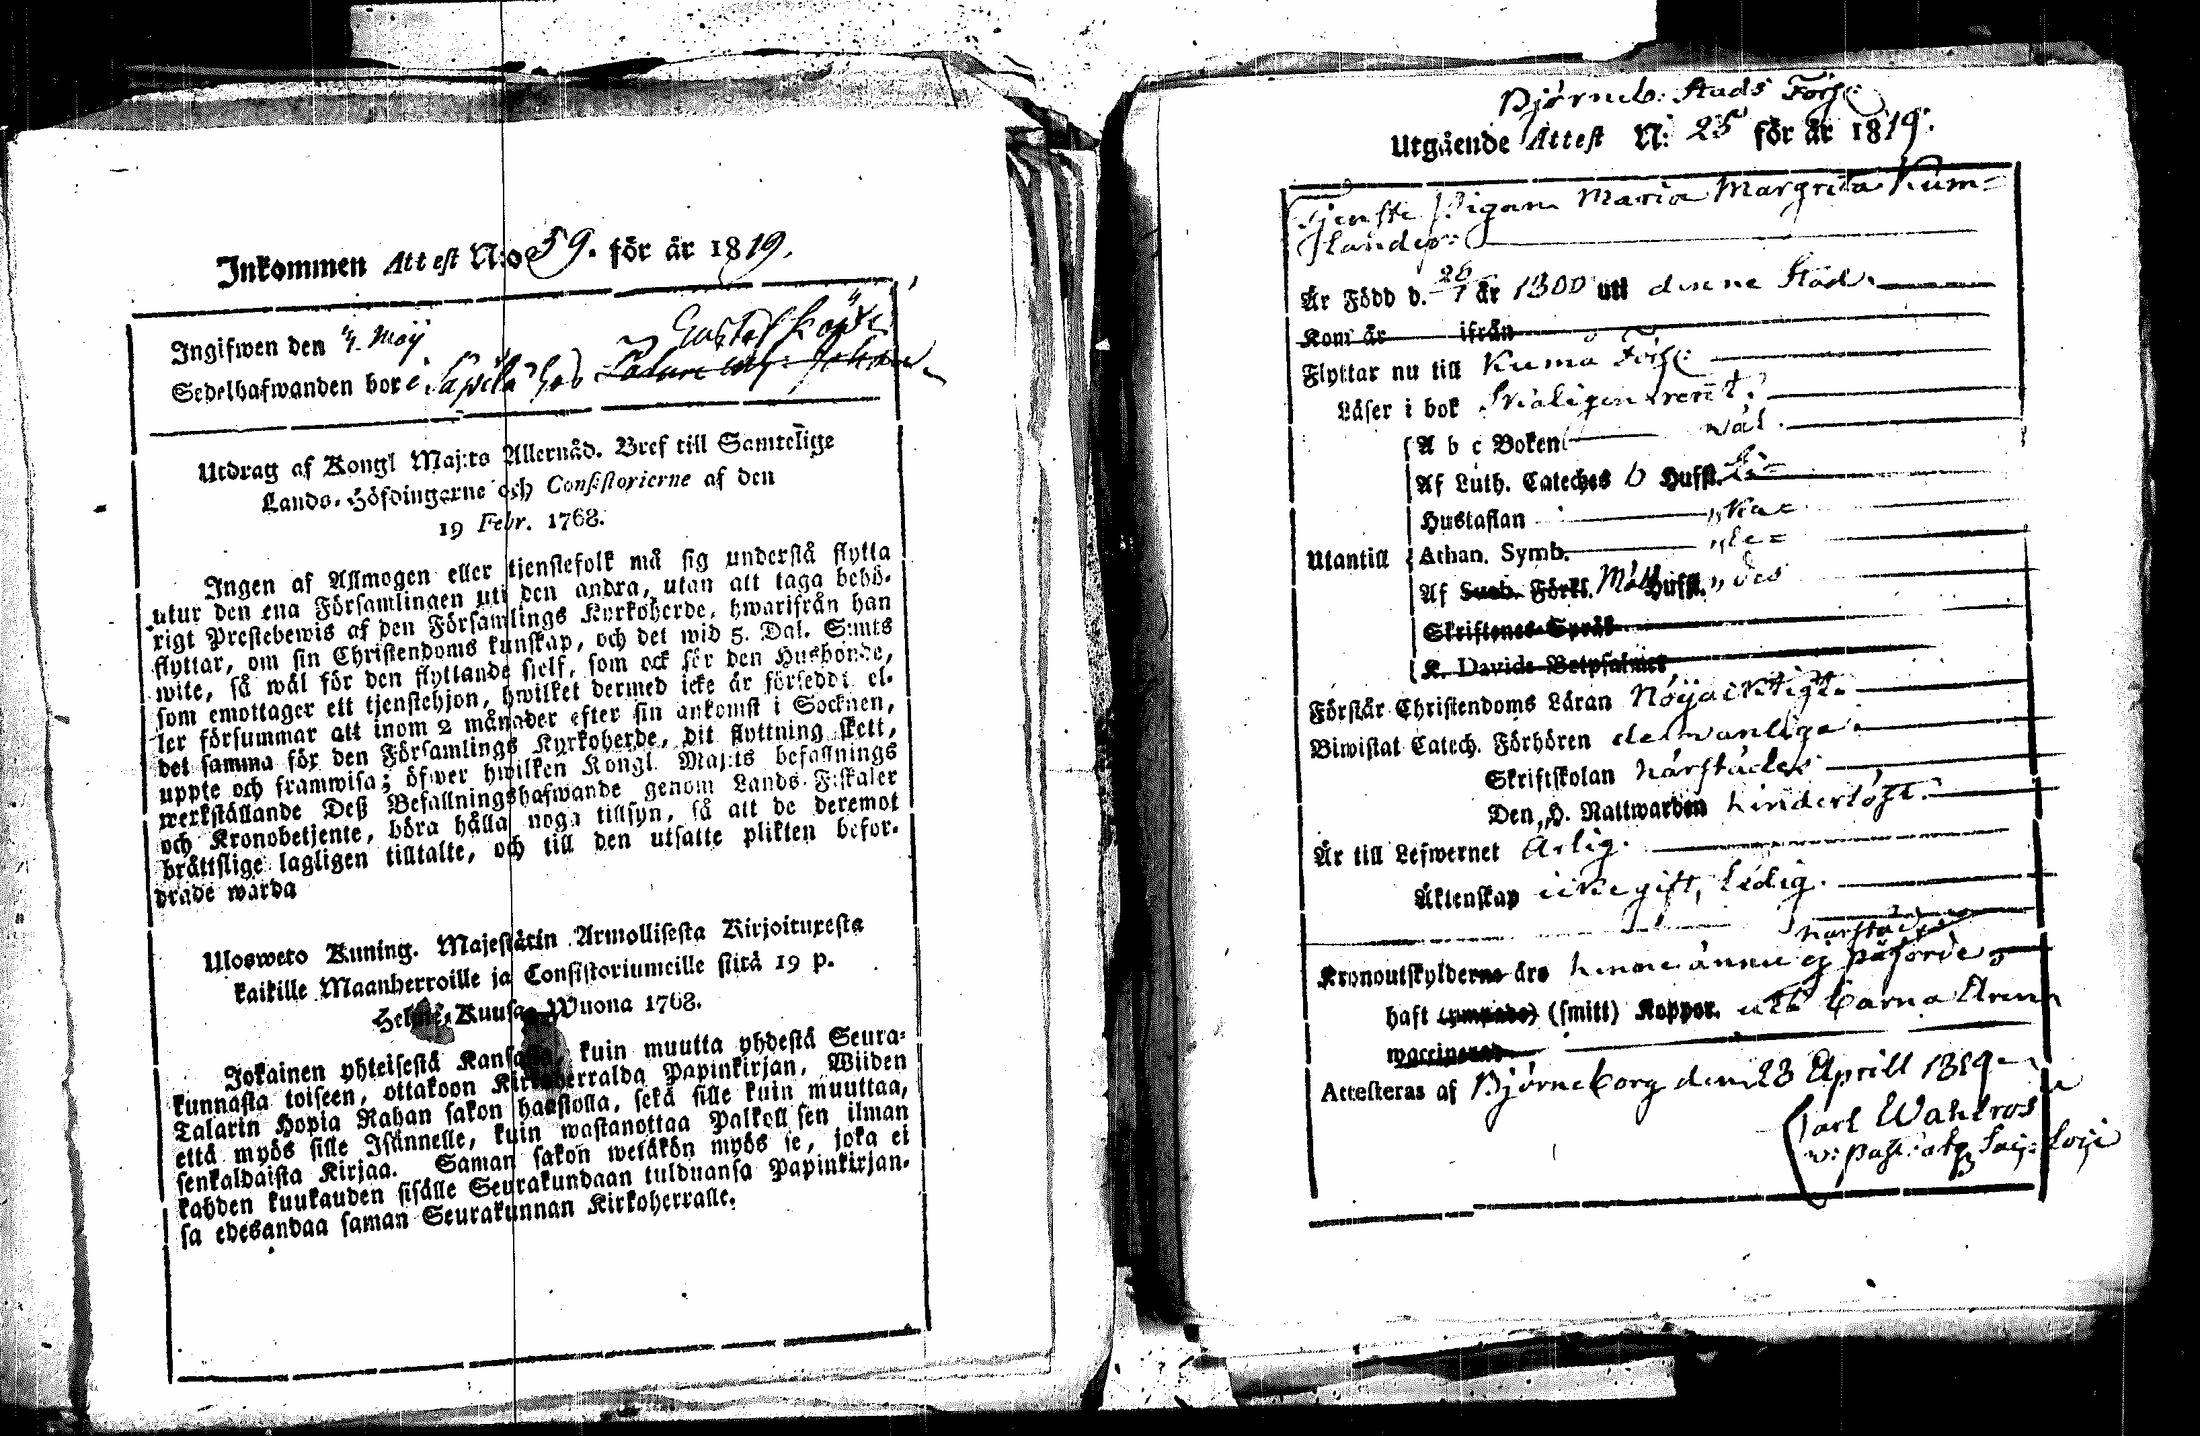 Inkommen Attest N:o 59. för år 1819.
Ingifwen den 4/7 Maÿ
Gustaf
Sedelhafwanden bor i hos
Utdrag af Kongl Maj:ts Allernåd. Bref till Samtelige
Lands-Höfdingarne och Consistorierne af den
19 Febr. 1768.
Ingen af Allmogen eller tjenstefolk må sig understå flytta
utur den ena Församlingen uti den andra, utan att taga behö-
rigt Prestebewis af den Församlings Kyrkoherde, hwarifrån han
flyttar, om sin Christendoms kunskap, och det wid 5. Dal. S:mts
wite, så wäl för den flyttande sjelf, som ock för den Husbonde,
som emottager ett tjenstehjon, hwilket dermed icke är försedd: el-
ler försummar att inom 2 månader efter sin ankomst i Socknen,
det samma för den Församlings Kyrkoherde, dit flyttning skett,
uppte och framwisa; öfwer hwilken Kongl Maj:ts befallnings
werkställande Deß Befallningshafwande genom Lands-Fiskaler
och Kronobetjente, böra hålla noga tillsyn, så att de deremot
bråttslige lagligen tilltalte, och till den utsatte plikten befor-
drade warda
Ulosweto Kuning. Majestätin Armollisesta Kirjoituxesta
kaikille Maanherroille ja Consistoriumeille siitä 19 p.
Helmi-Kuusa Wuona 1768.
Jokainen yhteisestä Kansasta, kuin muutta yhdestä Seura-
kunnasta toiseen, ottakoon Kirkoherralda Papinkirjan, Wiiden
Talarin Hopia Rahan sakon haastolla, sekä sille kuin muuttaa,
että myös sille Isännelle, kuin wastanottaa Palkollisen ilman
senkaldaista Kirjaa. Saman sakon wetäkön myös se, joka ei
kahden kuukauden sisälle Seurakundaan tulduansa Papinkirjan-
sa edesandaa saman Seurakunnan Kirkoherralle.
Björneb: Stads Förs:
Utgående Attest N: 25 för år 1819.
Tjenste Pigan Maria Margreta Kum-
lander
Är Född d. 26/7 år 1800 uti denne Stad.
Kom år ifrån
Flyttar nu till Kumå Förs:
Läser i bok Skäligen rent.
A b c Boken wäl.
Af Luth. Cateches 6 Hufst. Li-
Hustaflan "ka-
Utantill Athan. Symb. "le-
Af Sveb. Förkl. Hufst. "des
Skriftenes Språk
K. Davids Botpsalmer
Förstår Christendoms Läran Nöÿacktigt.
Biwistat Catech. Förhören de wanlige
Skriftskolan härstädes
Den H. Nattwarden hindertöst.
Är till Lefwernet Ärlig.
Äktenskap icke gift, Ledig.
härstädes
Kronoutskylderne äro henne ännu ej påförde
haft (ympade) (smitt) Koppor. uti Barna Åren
waccinerad
Attesteras af Björneborg den 28 Aprill 1819
Carl Wahlros